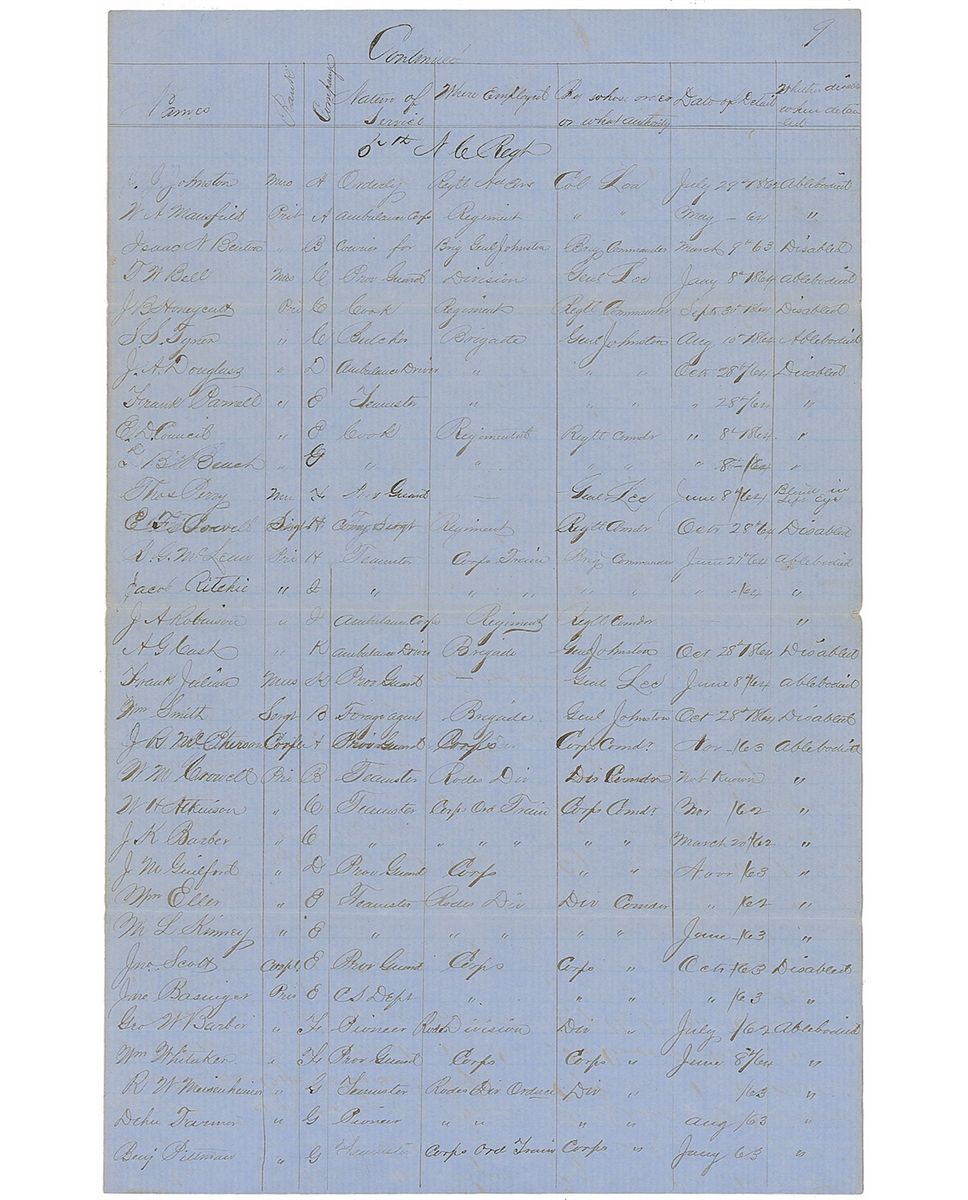 Continued 9
Names Rank Company Nature of Service Where Employed By whose order or what authority Date of Detail Whether disabled when detailed
5th N C Regt
Johnston Mus A Orderly Regtl Col Lea July 29th 1864 Ablebodied
W A Mansfield Priv A Ambulance Corps Regiment " " May - 64 "
Isaac N Benton " B Courier for Brig Genl Johnston Brig Commander March 9th 63 Disabled
D W Bell Mus C Prov Guard Division Genl Lee Jany 8th 1864 Ablebodied
J B Honeycutt Pri C Cook Regiment Regtl Commander Sept 30th 1864 Disabled
S S Tyner " C Butcher Brigade Genl Johnston Aug 10th 1864 Ablebodied
J. A. Douglass " D Ambulance Driver " " " Octr 28th/64 Disabled
Frank Parnell " E Teamster " " " " 28th/64 "
E. D. Council " E Cook Regiment Regtl Comdr " 8th 1864 "
Beach G " " " " " 8th/64 "
Thos Perry Mus F Prov Guard — Genl Lee June 8th/64 Blind in left eye
E F Powell Sergt H Comy Sergt Regiment Regtl Comdr Octr 28th/64 Disabled
McLean Pri H Teamster Corps Train Brig Commander June 27th/64 Ablebodied
Jacob Ritchie " I " " " " " " -/64 "
J A Robinson " I Ambulance Corps Regiment Regtl Comdr — "
A G Cash " K Ambulance Driver Brigade Genl Johnston Oct 28th 1864 Disabled
Frank Julian Mus K Prov Guard — Genl Lee June 8th/64 Ablebodied
Wm Smith Sergt B Forage agent Brigade Genl Johnston Oct 28th 1864 Disabled
J R McPherson Corpl A Prov Guard Corps Corps Comdr Nov -/63 Ablebodied
W M Crowell Pri B Teamster Rodes Div Div Comdr Not Known "
W H Atkinson " C Teamster Corps Ord Train Corps Comdr /62 "
J K Barber " C " " " " " " March 20th/62 "
J M Guilford " D Prov Guard Corps " " Novr /63 "
Wm Eller " E Teamster Rodes Div Div Comdr " /62 "
M L Kinney " E " " " " " June /63 "
Jno. Scott Corpl. E Prov Guard Corps Corps " Octr /63 Disabled
Jno Basinger Pri E C S Dept " " " " /63 "
Geo W Barber " F Pioneer Rodes Division Div " July /62 Ablebodied
Wm Whitaker " F Prov Guard Corps Corps " June 8th/64 "
R W Maisenheimer " G Teamster Rodes Div Ordnce Div " /63 "
Farmer " G Pioneer " " " " Aug /63 "
Benj Pittman " G Teamster Corps Ord Train Corps " Jany 63 "